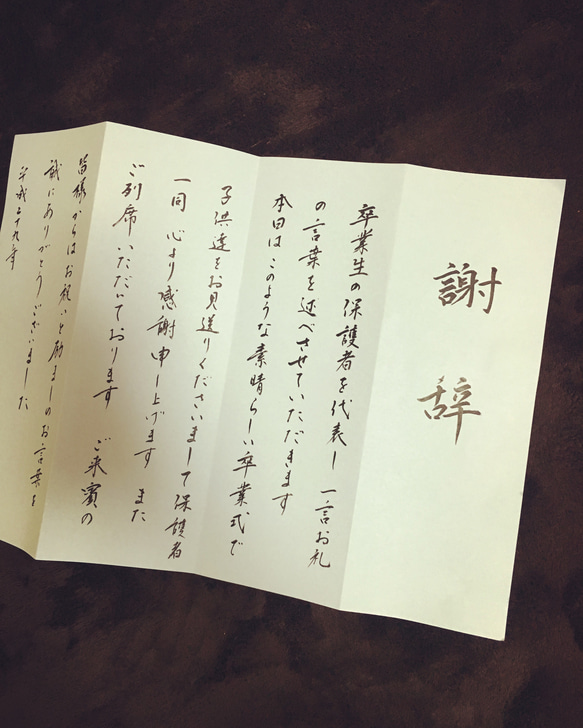 謝辞
卒業生の保護者を代表し 一言お礼
の言葉を述べさせていただきます
本日は このような素晴らしい卒業式で
子供達をお見送りくださいまして保護者
一同 心より感謝申し上げます また
ご列席 いただいております ご来賓の
皆様からはお祝いと励ましのお言葉を
誠にありがとうございました
平成二十九年